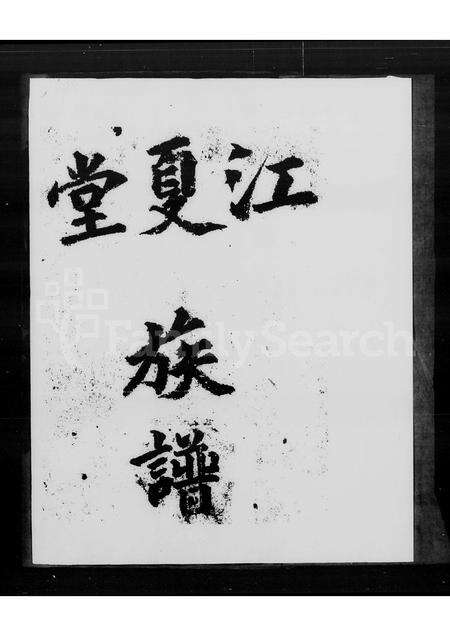 江夏堂
族譜
FamilySearch